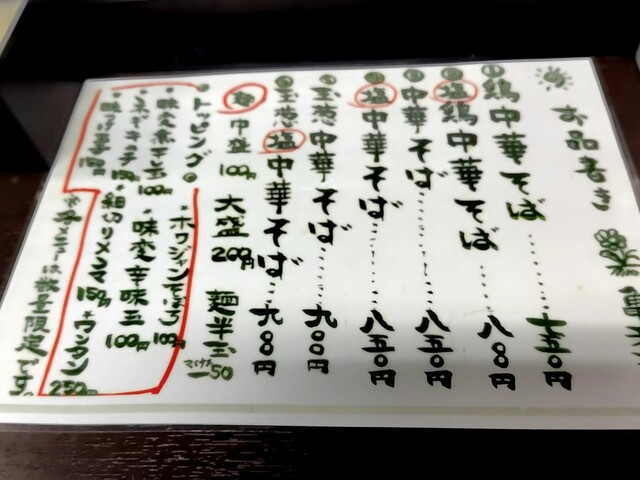 お品書き
① 鶏中華そば……… 七五〇円
② 塩鶏中華そば…… 八〇〇円
③ 中華そば……… 八五〇円
④ 塩中華そば……… 八五〇円
⑤ 玉葱中華そば… 九〇〇円
⑥ 玉葱塩中華そば… 九〇〇円
麺 中盛 100円 大盛 200円 麺半玉 マイナス −50
トッピング
・ホワジャンそぼろ 100円
・味変辛味玉 100円
・細切リメンマ 150円
・ワンタン 250円
・味つけ玉子 150円
※各メニューは数量限定です。